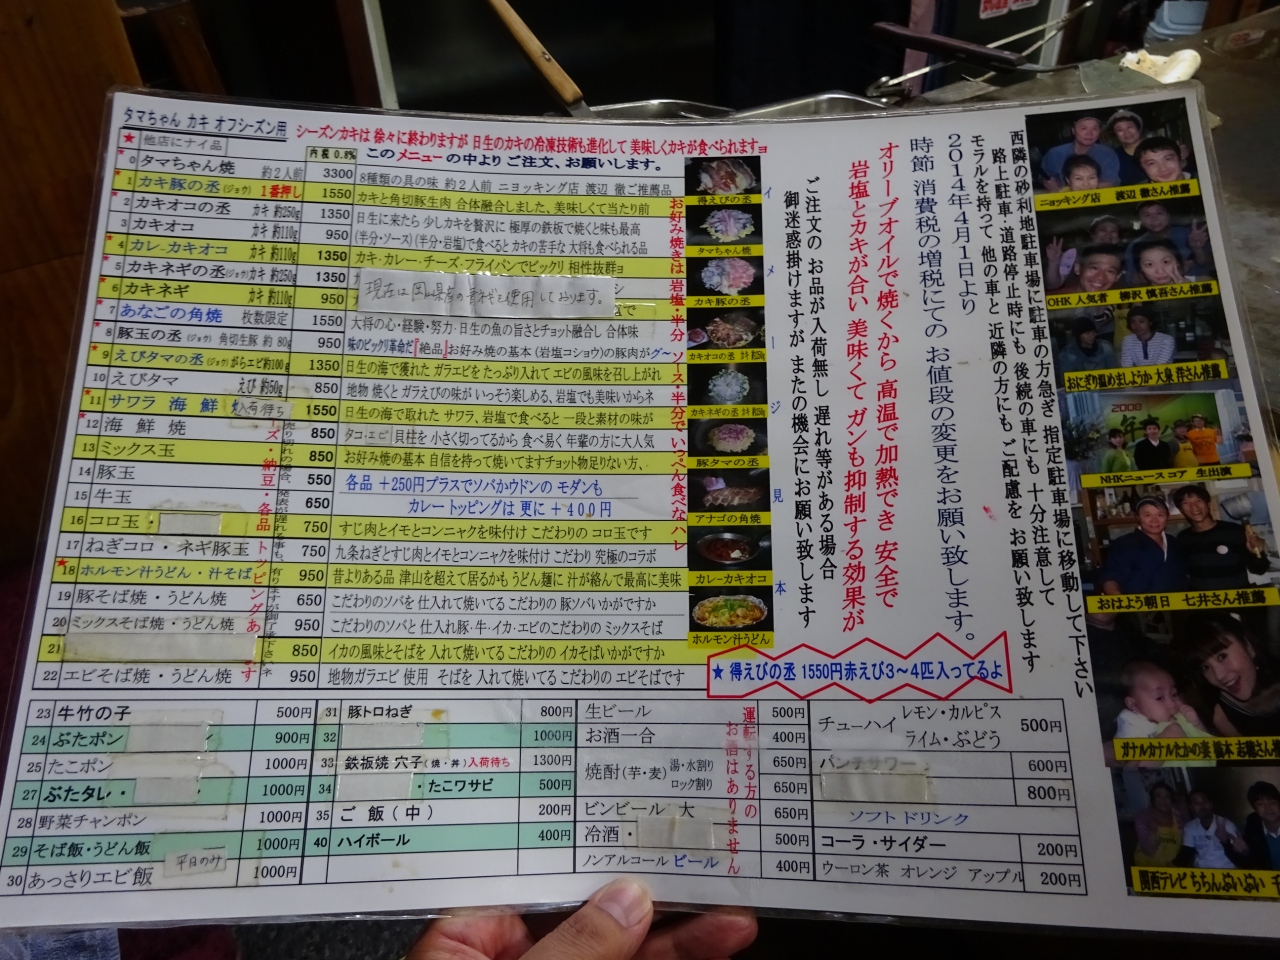 タマちゃん カキ オフシーズン用
シーズンカキは 徐々に終わりますが 日生のカキの冷凍技術も進化して 美味しくカキが食べられますョ
★ 他店にナイ品
内税0.8%
このメニューの中より ご注文、お願いします。
0 タマちゃん焼 約2人前 3300 8種類の具の味 約2人前 ニヨッキング店 渡辺 徹ご推薦品
1 カキ豚の丞(ジョウ) 1番押し 1550 カキと角切豚生肉 合体融合しました、美味しくて当たり前
2 カキオコの丞 カキ 約250g 1350 日生に来たら 少しカキを贅沢に 極厚の鉄板で焼くと味も最高
3 カキオコ カキ 約110g 950 (半分・ソース)(半分・岩塩)で食べると カキの苦手な 大将も食べられる品
4 カレーカキオコ 約110g 1350 カキ・カレー・チーズ・フライパンでビックリ 相性抜群ョ
5 カキネギの丞(ジョウ) カキ 約250g 1350
6 カキネギ カキ 約110g 950
現在は岡山県産の青ネギを使用しております。
7 あなごの角焼 枚数限定 1550 大将の心・経験・努力・日生の魚の旨さとチョット融合し 合体味
8 豚玉の丞(ジョウ) 角切生豚 約80g 950 味のビックリ革命だ「絶品」お好み焼の基本(岩塩コショウ)の豚肉がグ〜
9 えびタマの丞(ジョウ) がらエビ約100g 1350 日生の海で獲れた ガラエビを たっぷり入れて エビの風味を召し上がれ
10 えびタマ えび 約50g 850 地物 焼くと ガラえびの味が いっそう楽しめる、岩塩でも美味いからネ
11 サワラ 海鮮 入荷待ち 1550 日生の海で取れた サワラ、岩塩で食べると 一段と素材の味が
12 海鮮焼 850 タコ・エビ 貝柱を 小さく切ってるから 食べ易く 年輩の方に大人気
13 ミックス玉 850 お好み焼の基本 自信を持って焼いてますチョット物足りない方、
14 豚玉 550 各品 +250円プラスでソバかウドンの モダンも
15 牛玉 950 カレートッピングは 更に +400円
16 コロ玉・ 750 すじ肉とイモとコンニャクを味付け こだわりの コロ玉です
17 ねぎコロ・ネギ豚玉 750 九条ねぎとすじ肉とイモとコンニャクを味付け こだわり 究極のコラボ
18 ホルモン汁うどん・汁そば 950 昔よりある品 津山を超えて居るかも うどん麺に 汁が絡んで最高に美味
19 豚そば焼・うどん焼 650 こだわりのソバを 仕入れて焼いてる こだわりの 豚ソバいかがですか
20 ミックスそば焼・うどん焼 950 こだわりのソバと 仕入れ豚・牛・イカ・エビのこだわりの ミックスそば
21 850 イカの風味とそばを 入れて焼いてる こだわりの イカそばいかがですか
22 エビそば焼・うどん焼 950 地物ガラエビ 使用 そばを 入れて焼いてる こだわりの エビそばです
お好み焼きは 岩塩・半分 ソース・半分で いっぺん食べなハレ
得えびの丞
タマちゃん焼
カキ豚の丞
カキオコの丞
カキネギの丞
豚タマの丞
アナゴの角焼
カレーカキオコ
ホルモン汁うどん
イメージ見本
ご注文の お品が入荷無し 遅れ等がある場合
御迷惑掛けますが またの機会にお願い致します
オリーブオイルで焼くから 高温で加熱でき 安全で
岩塩とカキが合い 美味くて ガンも抑制する効果が
2014年4月1日より
時節 消費税の増税にての お値段の変更をお願い致します。
西隣の砂利地駐車場に駐車の方急ぎ 指定駐車場に移動して下さい
路上駐車・道路停止時にも 後続の車にも 十分注意して
モラルを持って 他の車と 近隣の方にも ご配慮を お願い致します
★ 得えびの丞 1550円赤えび3〜4匹入ってるよ
23 牛竹の子 500円
24 ぶたポン 900円
25 たこポン 1000円
27 ぶたタレ・ 1000円
28 野菜チャンポン 1000円
29 そば飯・うどん飯 1000円
平日のみ
30 あっさりエビ飯 1000円
31 豚トロねぎ 800円
32 1000円
33 鉄板焼 穴子(焼・丼)入荷待ち 1300円
34 ・たこワサビ 500円
35 ご飯(中) 200円
40 ハイボール 400円
生ビール 500円
お酒一合 400円
焼酎(芋・麦) 湯・水割り 650円
ロック割り 650円
ビンビール 大 650円
冷酒・ 500円
ノンアルコール ビール 400円
運転する方の お酒はありません
チューハイ レモン・カルピス ライム・ぶどう 500円
600円
800円
ソフトドリンク
コーラ・サイダー 200円
ウーロン茶 オレンジ アップル 200円
ニョッキング店 渡辺 徹さん推薦
OHK 人気者 柳沢 慎吾さん推薦
おにぎり温めましょうか 大泉 洋さん推薦
2008
NHKニュースコア 生出演
おはよう朝日 七井さん推薦
関西テレビ ちちんぷいぷい